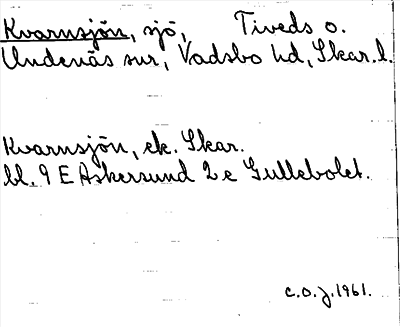 Kvarnsjön, sjö, Tiveds o.
Undenäs snr, Vadsbo hd, Skar. l.
Kvarnsjön, ek. Skar.
bl. 9 E Askersund 2 e Gullebolet.
C.O.J. 1961.